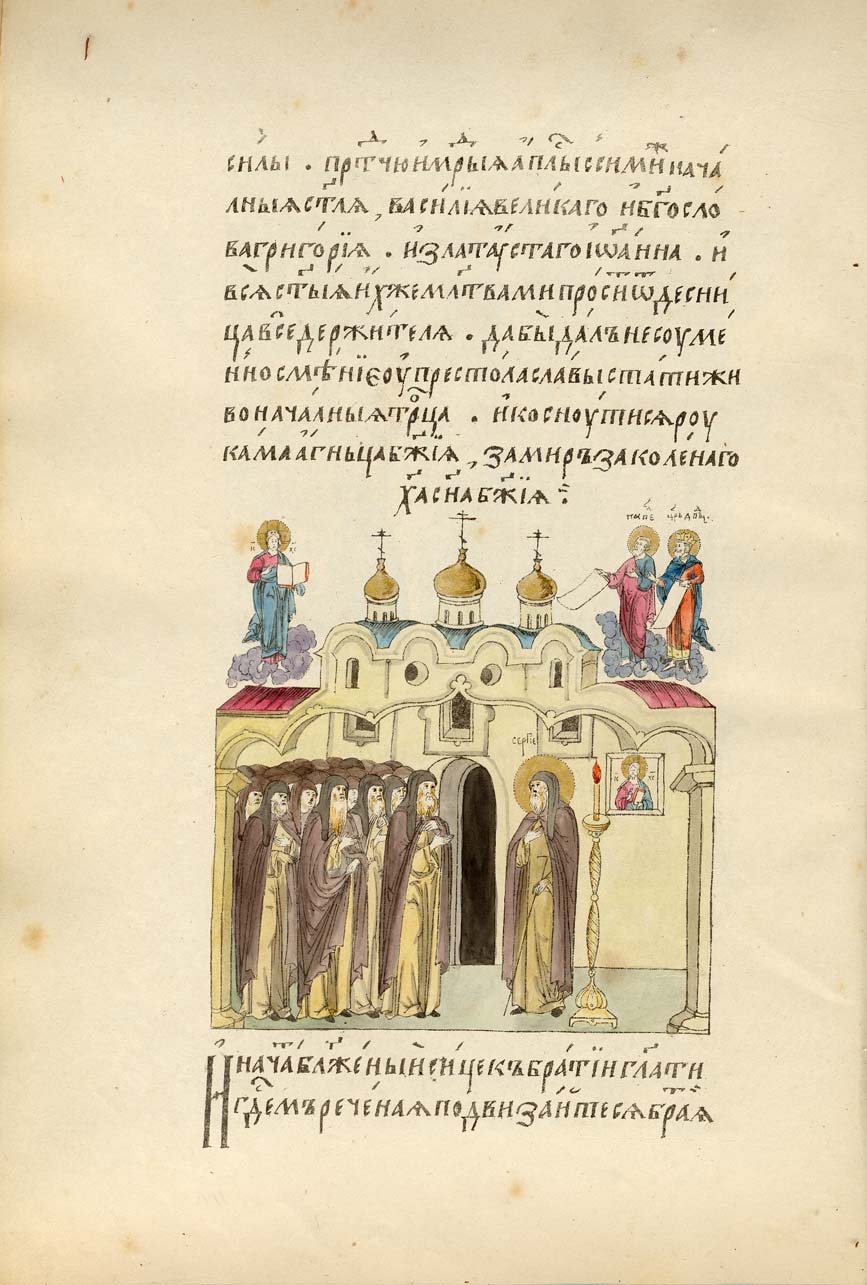 силы . прⷣтчю и мрыѧ а҆пⷭлы с сими҆ⷤ нача
лныѧ ст҃лѧ , васи́лїѧ вели́каго и҆ бг҃осло
ва григо́рїѧ . и҆ златаꙋстаго і҆ѡа́нна . и҆
всѧ̀ ст҃ыѧ и҆́хже мл҃твами проси́ти ѿ десни́
ца вседержи́телѧ . да бы да́лъ несоумѣ
нно смѣ́нїе оу҆ престола славы стати жи
воначалныѧ трⷪ҇ца . и҆ коснꙋтисѧ роу
ка́ма а҆́гньца бж҃їѧ , за миръ заколе́наго
хаⷭ҇ сн҃а бж҃їѧ :
ІС ХС
па́веⷧ
цр҃ь дв҃дъ
серги́е
ІС ХС
И҆ нача блаже́ныи си́це къ бра́тїи гл҃ати
гдⷭ҇емъ рече́наѧ подвиза́итесѧ бра́тⷷѧ